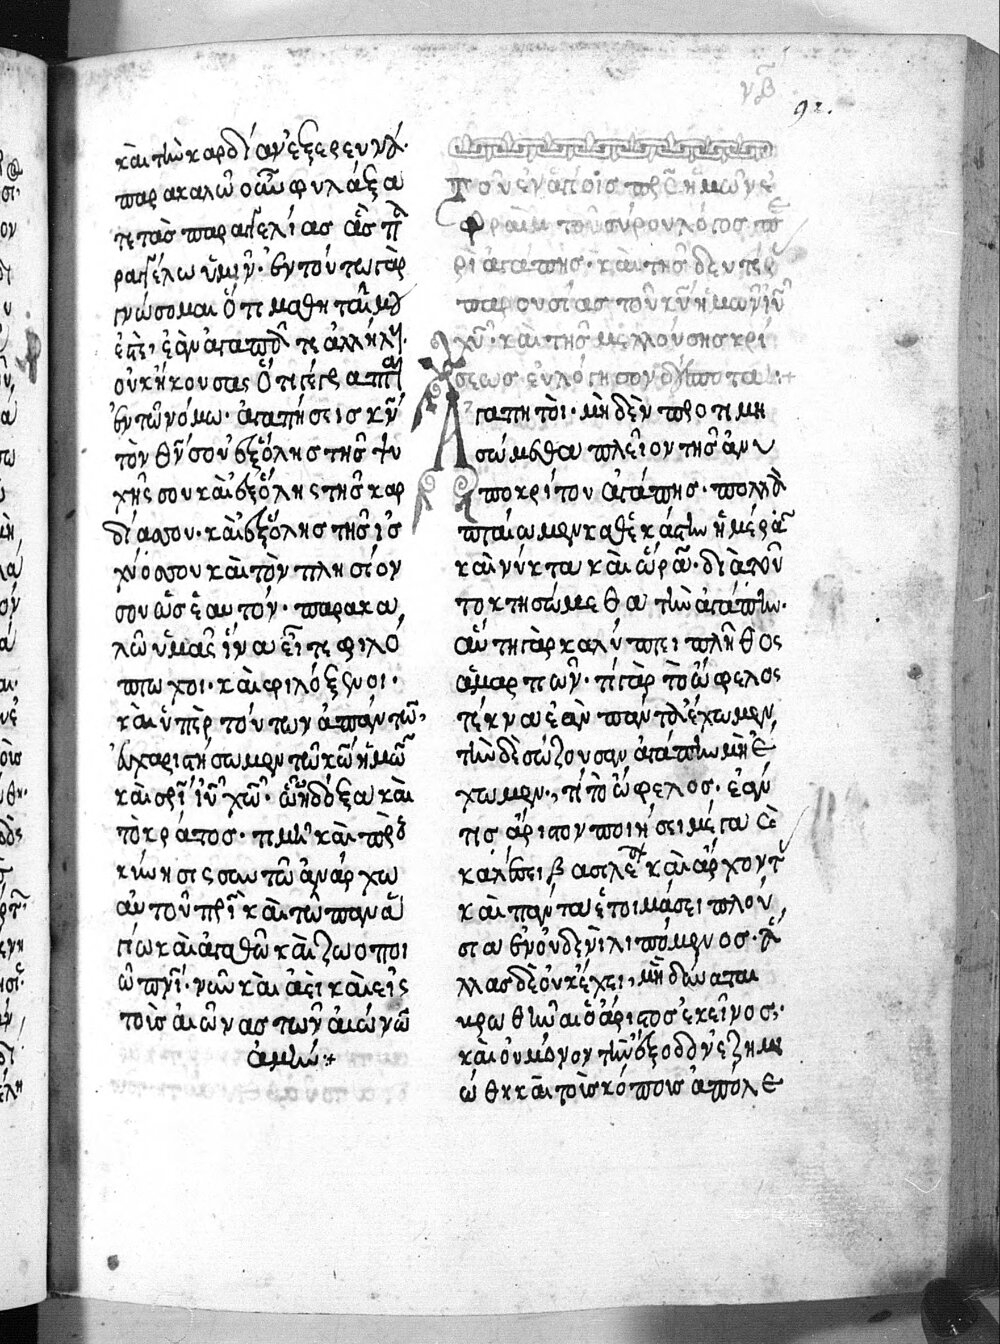 νβ
92.
καὶ τὴν καρδίαν ἐξερευνᾷ·
παρακαλῶ οὖν φυλάξα
τε τὰς παραγγελίας ἃς π
ραγγέλω ὑμῖν· ἐν τούτω γὰρ
γνώσομαι ὅτι μαθηταί μου
ἐστε, ἐὰν ἀγαπᾶτε ἀλλήλους·
οὐκ ἤκουσας ὅτι γέγραπται
ἐν τῶ νόμω· ἀγαπήσεις κν
τὸν θν σου ἐξ ὅλης τῆς ψυ
χῆς σου καὶ ἐξ ὅλης τῆς καρ
δίας σου· καὶ ἐξ ὅλης τῆς ἰσ
χύος σου καὶ τὸν πλησίον
σου ὡς ἑαυτόν· παρακα
λῶ ὑμᾶς ἵνα ἦτε φιλό
πτωχοι· καὶ φιλόξενοι·
καὶ ὑπὲρ τούτων ἁπάντων,
εὐχαριστήσωμεν τῶ κω ἡμῶν
καὶ σρι ιυ χω· ὧ ἡ δόξα καὶ
τὸ κράτος· τιμὴ καὶ προσ
κύνησις σὺν τῶ ἀνάρχω
αὐτοῦ πρι καὶ τῶ παναγ
ίω καὶ ἀγαθῶ καὶ ζωοποι
ῶ πνι· νῦν καὶ ἀεὶ καὶ εἰς
τοὺς αἰῶνας τῶν αἰώνων
ἀμήν:+
Τοῦ ἐν ἁγίοις πρς ἡμῶν ἐ
φραὶμ τοῦ σύρου λόγος πε
ρὶ ἀγάπης· καὶ τῆς δευτέρ
παρουσίας τοῦ κυ ἡμῶν ιυ
χυ· καὶ τῆς μελλούσης κρί
σεως· εὐλόγησον δέσποτα:+
Ἀγαπητοί· μηδὲν προτιμη
σώμεθα πλεῖον τῆς ἀνυ
ποκρίτου ἀγάπης· πολλὰ
πταίωμεν καθεκάστην ἡμέραν
καὶ νύκτα καὶ ὥραν· διὰ τοῦ
το κτησώμεθα τὴν ἀγάπην·
αὕτη γὰρ καλύπτει πλῆθος
ἁμαρτιῶν· τί γὰρ τὸ ὤφελος
τέκνα ἐὰν πάντα ἔχωμεν,
τὴν δὲ σώζουσαν ἀγάπην μὴ ἔ
χωμεν, τί τὸ ὤφελος· ἐάν
τις ἄριστον ποιήσει μέγα
καλέσει βασιλέα καὶ ἄρχοντας
καὶ πάντα ἑτοιμάσει πλού
σια ἐν οὐδενὶ λιπόμενος· ἅ
λλας δὲ οὐκ ἔχει, μὴ δύναται
βρωθῆναι ὁ ἄριστος ἐκεῖνος·
καὶ οὐ μόνον τὴν ἔξοδον ἐζημι
ώθη καὶ τοὺς κόπους ἀπόλε